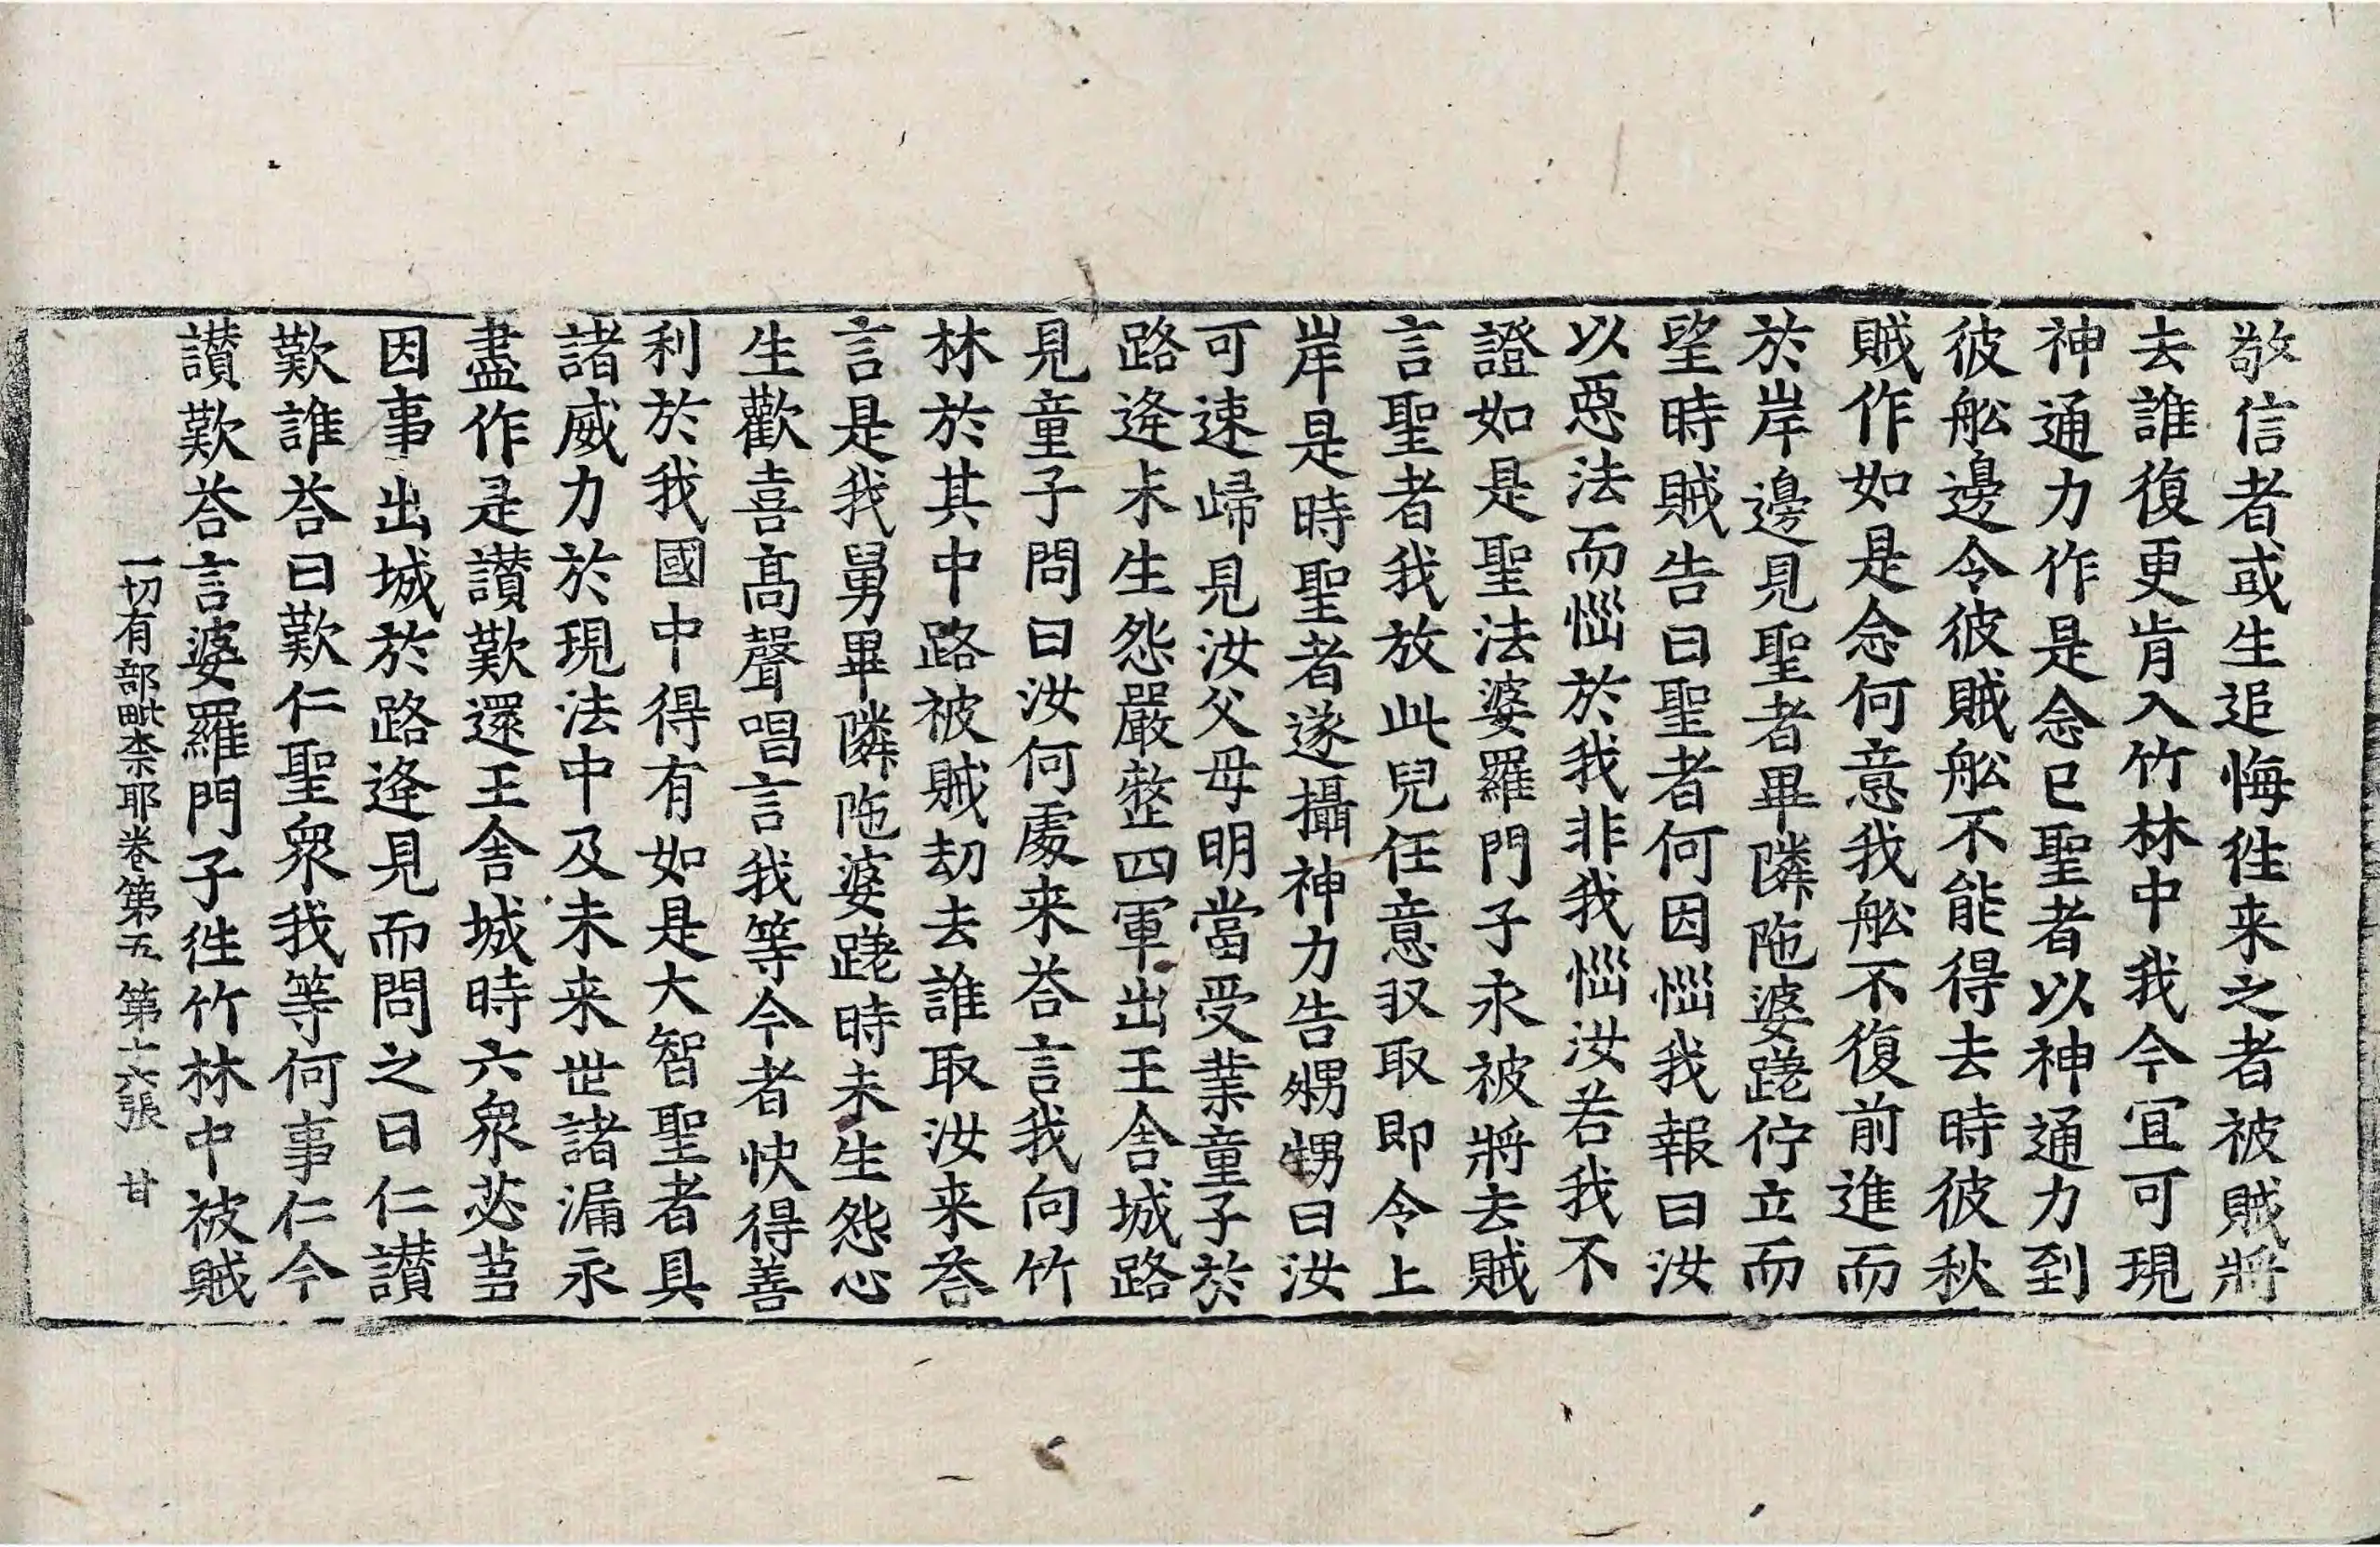 敬信者或生追悔徃来之者被賊將
去誰復更肯入竹林中我今宜可現
神通力作是念已聖者以神通力到
彼舩邊令彼賊舩不能得去時彼秋
賊作如是念何意我舩不復前進而
於岸邊見聖者畢隣陁婆蹉佇立而
望時賊告曰聖者何因惱我報曰汝
以惡法而惱於我非我惱汝若我不
證如是聖法婆羅門子永被將去賊
言聖者我放此兒任意収取即令上
岸是時聖者遂攝神力告甥甥曰汝
可速歸見汝父母明當受業童子於
路逄未生怨嚴整四軍出王舍城路
見童子問曰汝何處来荅言我向竹
林於其中路被賊劫去誰取汝来荅
言是我舅畢隣陁婆蹉時未生怨心
生歡喜髙聲唱言我等今者快得善
利於我國中得有如是大智聖者具
諸威力於現法中及未来世諸漏永
盡作是讃歎還王舍城時六衆苾芻
因事出城於路逄見而問之曰仁讃
歎誰荅曰歎仁聖衆我等何事仁今
讃歎荅言婆羅門子徃竹林中被賊
一切有部毗奈耶卷第五 第十六張 甘